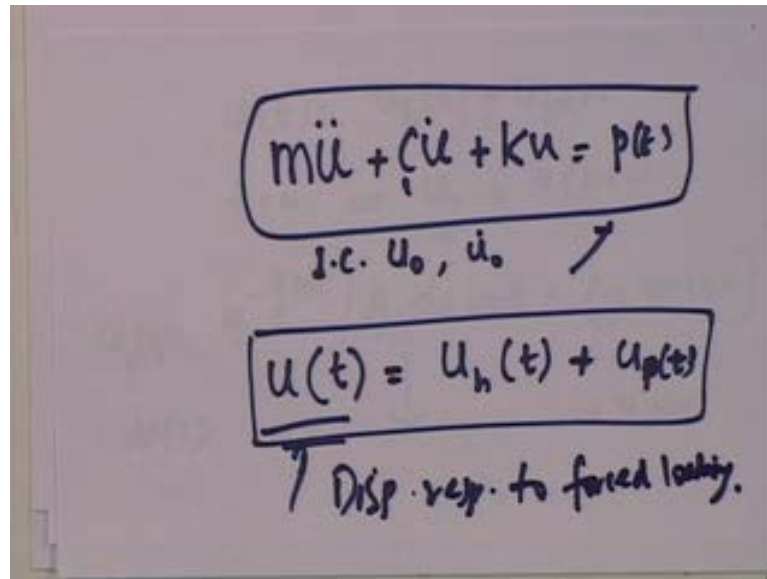 mü + cu̇ + ku = p(t)
I.C. u₀, u̇₀
u(t) = u_h(t) + u_p(t)
Disp. resp. to forced loading.